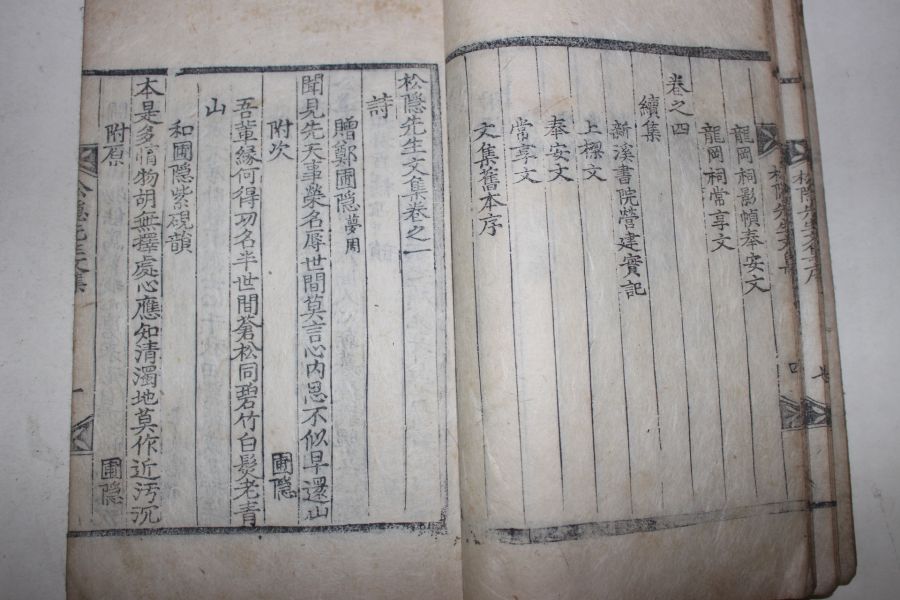 松隱先生文集序
七
四
龍岡祠影幀奉安文
龍岡祠常享文
卷之四
續集
新溪書院營建實記
上樑文
奉安文
常享文
文集舊本序
松隱先生文集卷之一
詩
贈鄭圃隱夢周
聞見先天事榮名辱世間莫言心內思不似早還山
附次 圃隱
吾輩緣何得功名半世間蒼松同碧竹白髮老青
山
和圃隱紫硯韻
本是多情物胡無擇處心應知清濁地莫作近污沉
附原 圃隱
松隱先生文集
一